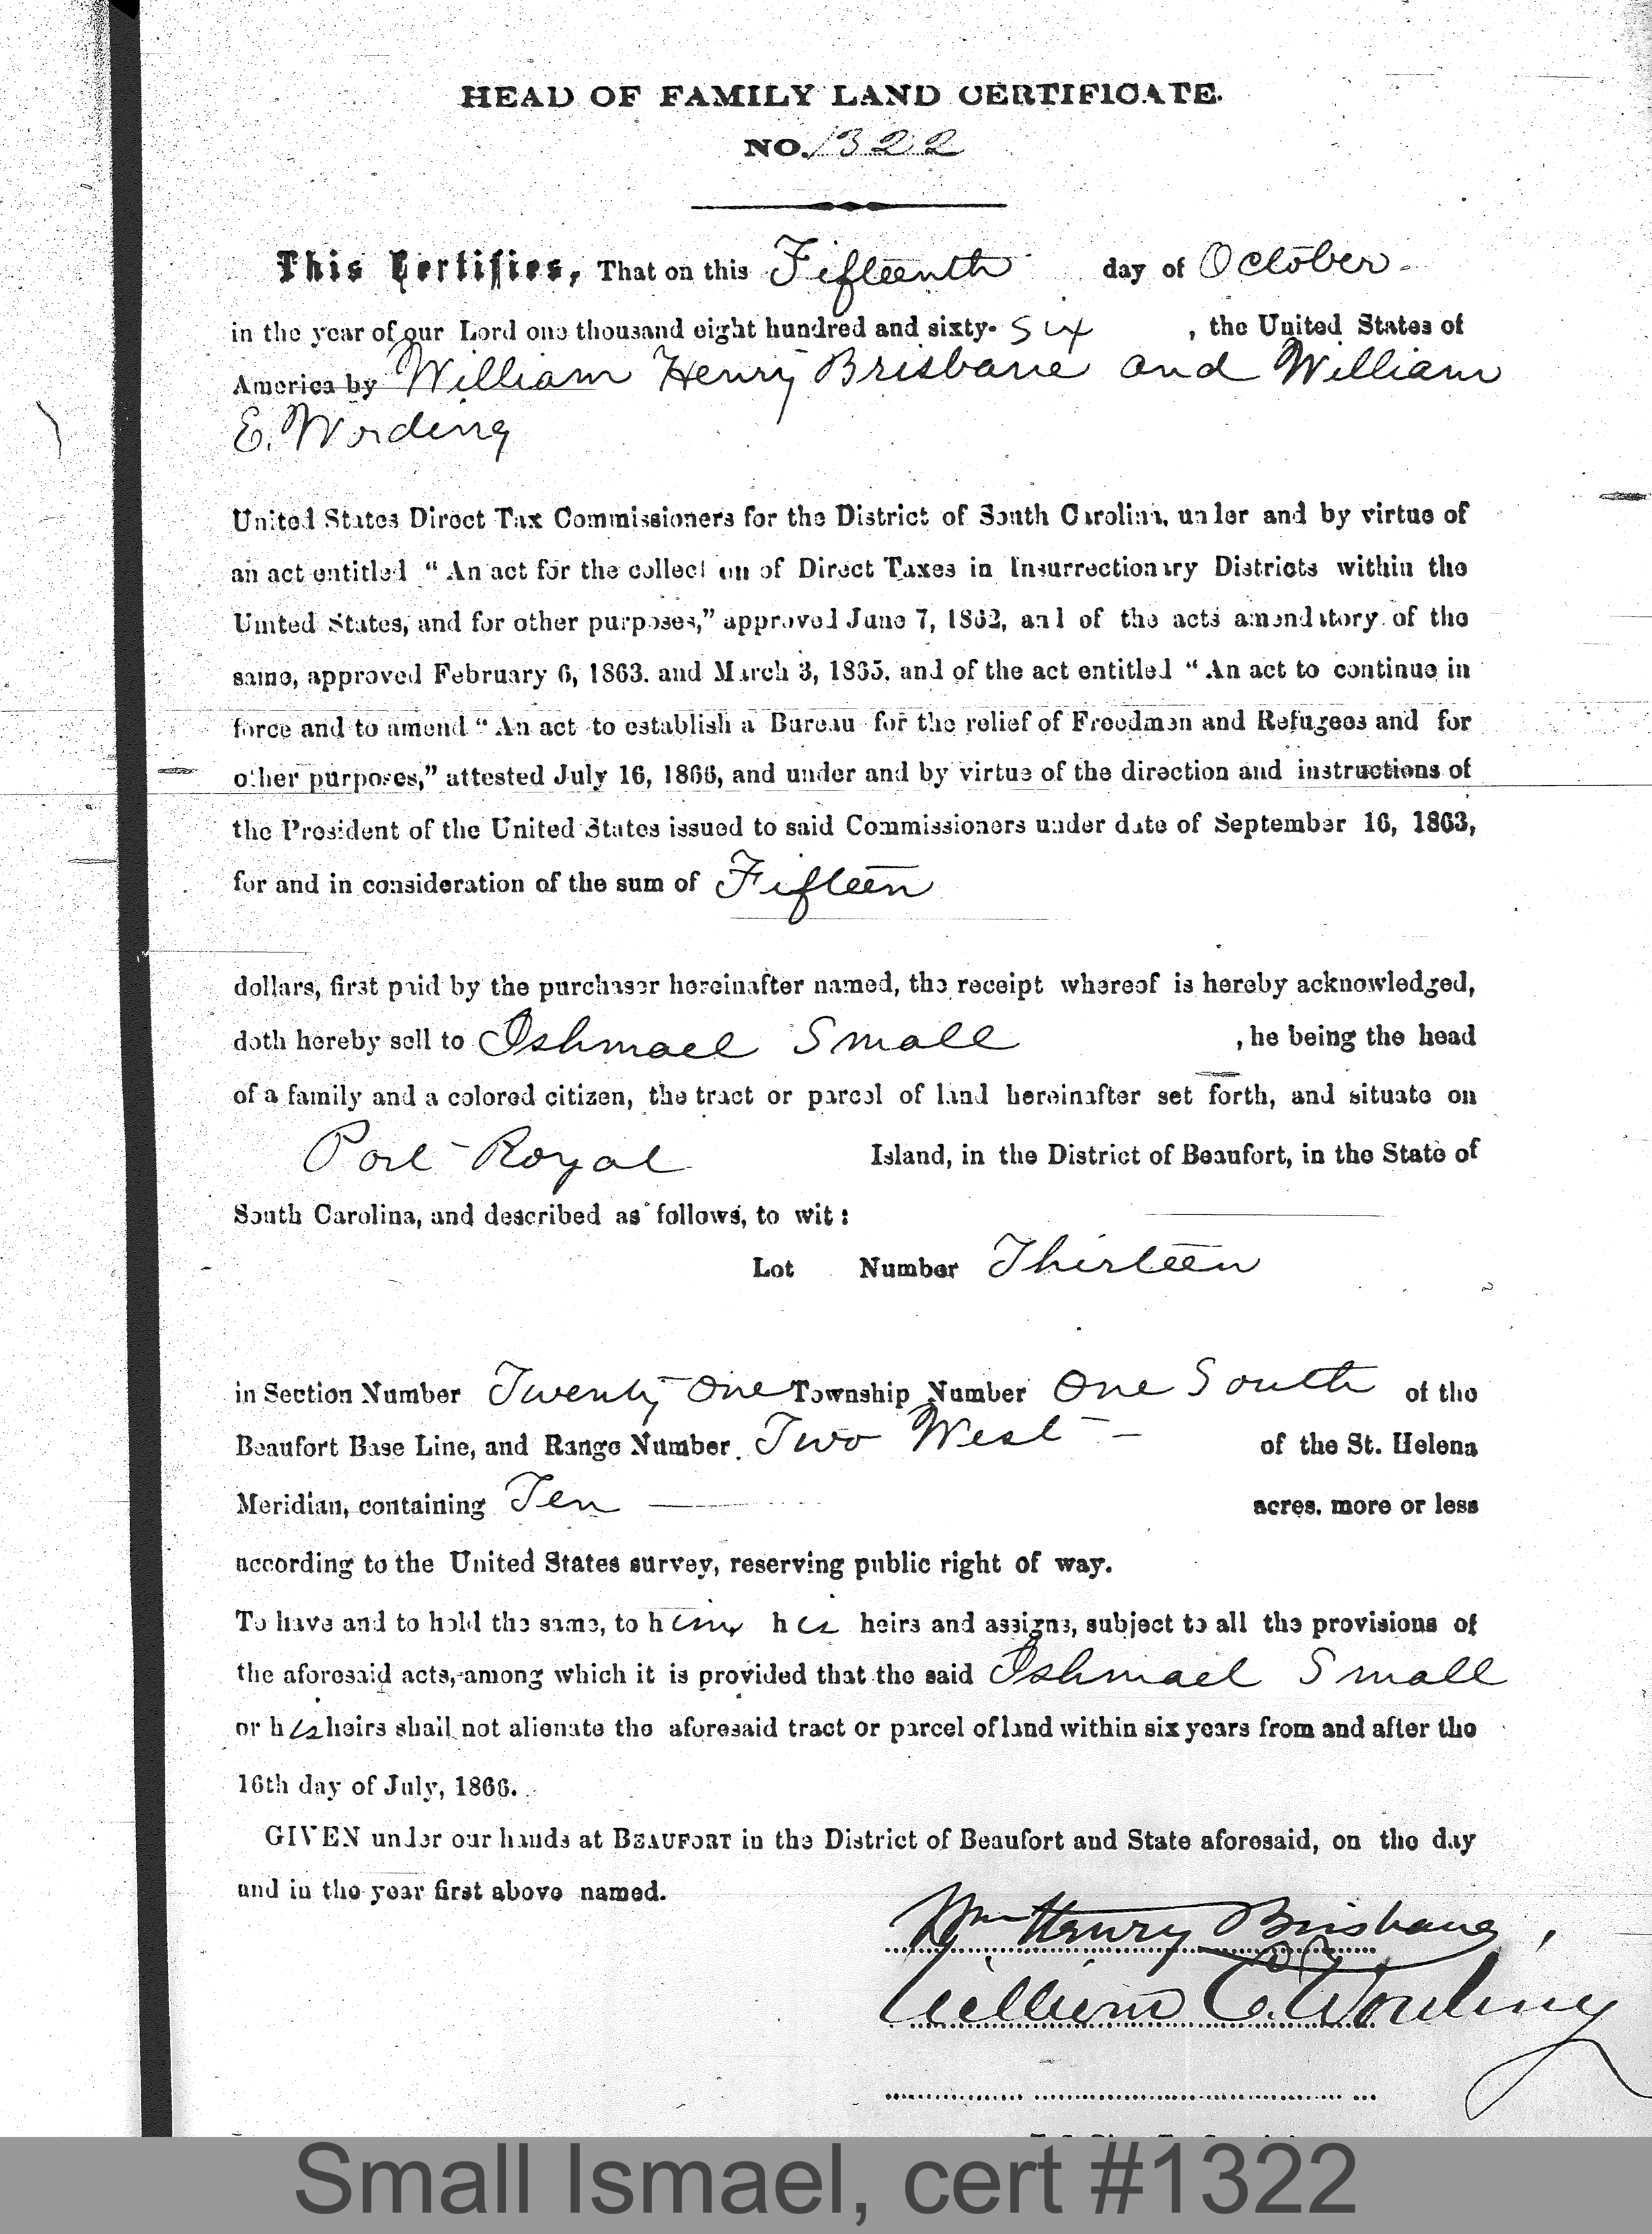 HEAD OF FAMILY LAND CERTIFICATE.
NO. 1322
This Certifies, That on this Fifteenth day of October
in the year of our Lord one thousand eight hundred and sixty-six , the United States of
America by William Henry Brisbane and William
E. Wording
United States Direct Tax Commissioners for the District of South Carolina, under and by virtue of
an act entitled "An act for the collection of Direct Taxes in Insurrectionary Districts within the
United States, and for other purposes," approved June 7, 1862, and of the acts amendatory of the
same, approved February 6, 1863. and March 3, 1865. and of the act entitled "An act to continue in
force and to amend "An act to establish a Bureau for the relief of Freedman and Refugees and for
other purposes," attested July 16, 1866, and under and by virtue of the direction and instructions of
the President of the United States issued to said Commissioners under date of September 16, 1863,
for and in consideration of the sum of Fifteen
dollars, first paid by the purchaser hereinafter named, the receipt whereof is hereby acknowledged,
doth hereby sell to Ishmael Small , he being the head
of a family and a colored citizen, the tract or parcel of land hereinafter set forth, and situate on
Port Royal Island, in the District of Beaufort, in the State of
South Carolina, and described as follows, to wit:
Lot Number Thirteen
in Section Number Twenty One Township Number One South of the
Beaufort Base Line, and Range Number Two West - of the St. Helena
Meridian, containing Ten — acres. more or less
according to the United States survey, reserving public right of way.
To have and to hold the same, to him his heirs and assigns, subject to all the provisions of
the aforesaid acts, among which it is provided that the said Ishmael Small
or his heirs shall not alienate the aforesaid tract or parcel of land within six years from and after the
16th day of July, 1866.
GIVEN under our hands at BEAUFORT in the District of Beaufort and State aforesaid, on the day
and in the year first above named.
Wm Henry Brisbane,
William E. Wording
Small Ismael, cert #1322